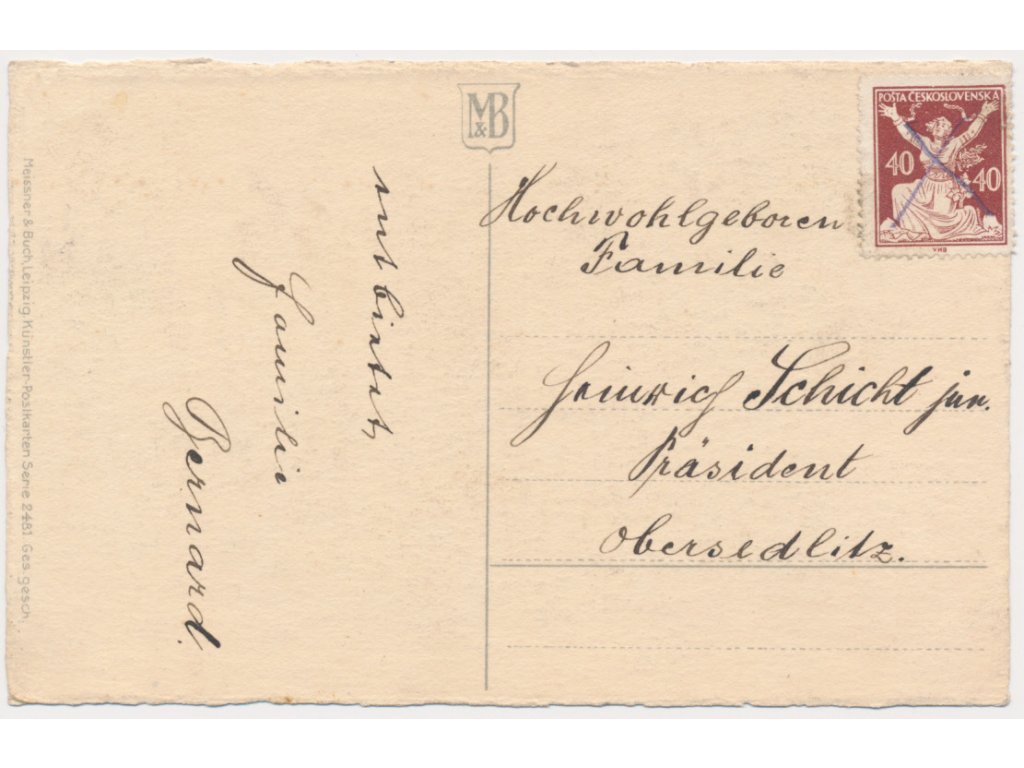 M&B
POŠTA ČESKOSLOVENSKÁ
40
40
VHB
entbietet,
Familie
Bernard.
Hochwohlgeboren
Familie
Heinrich Schicht jun.
Präsident
Obersedlitz.
Meissner & Buch, Leipzig. Künstler-Postkarten Serie 2481. Ges. gesch.